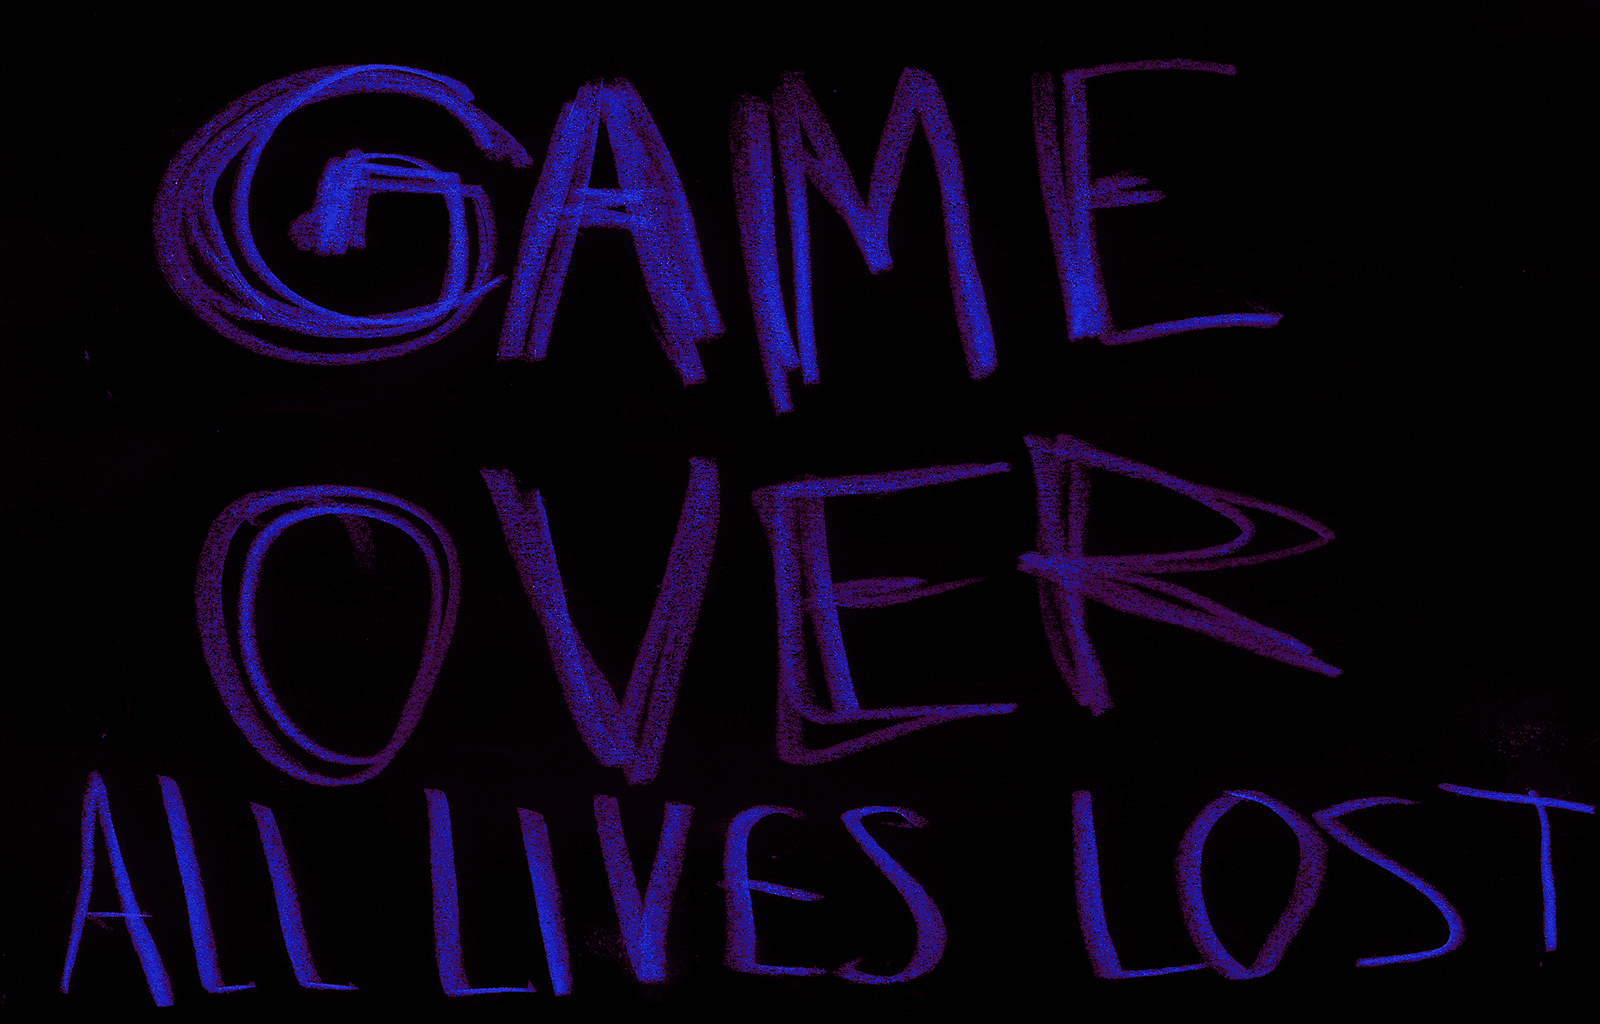 GAME
OVER
ALL LIVES LOST